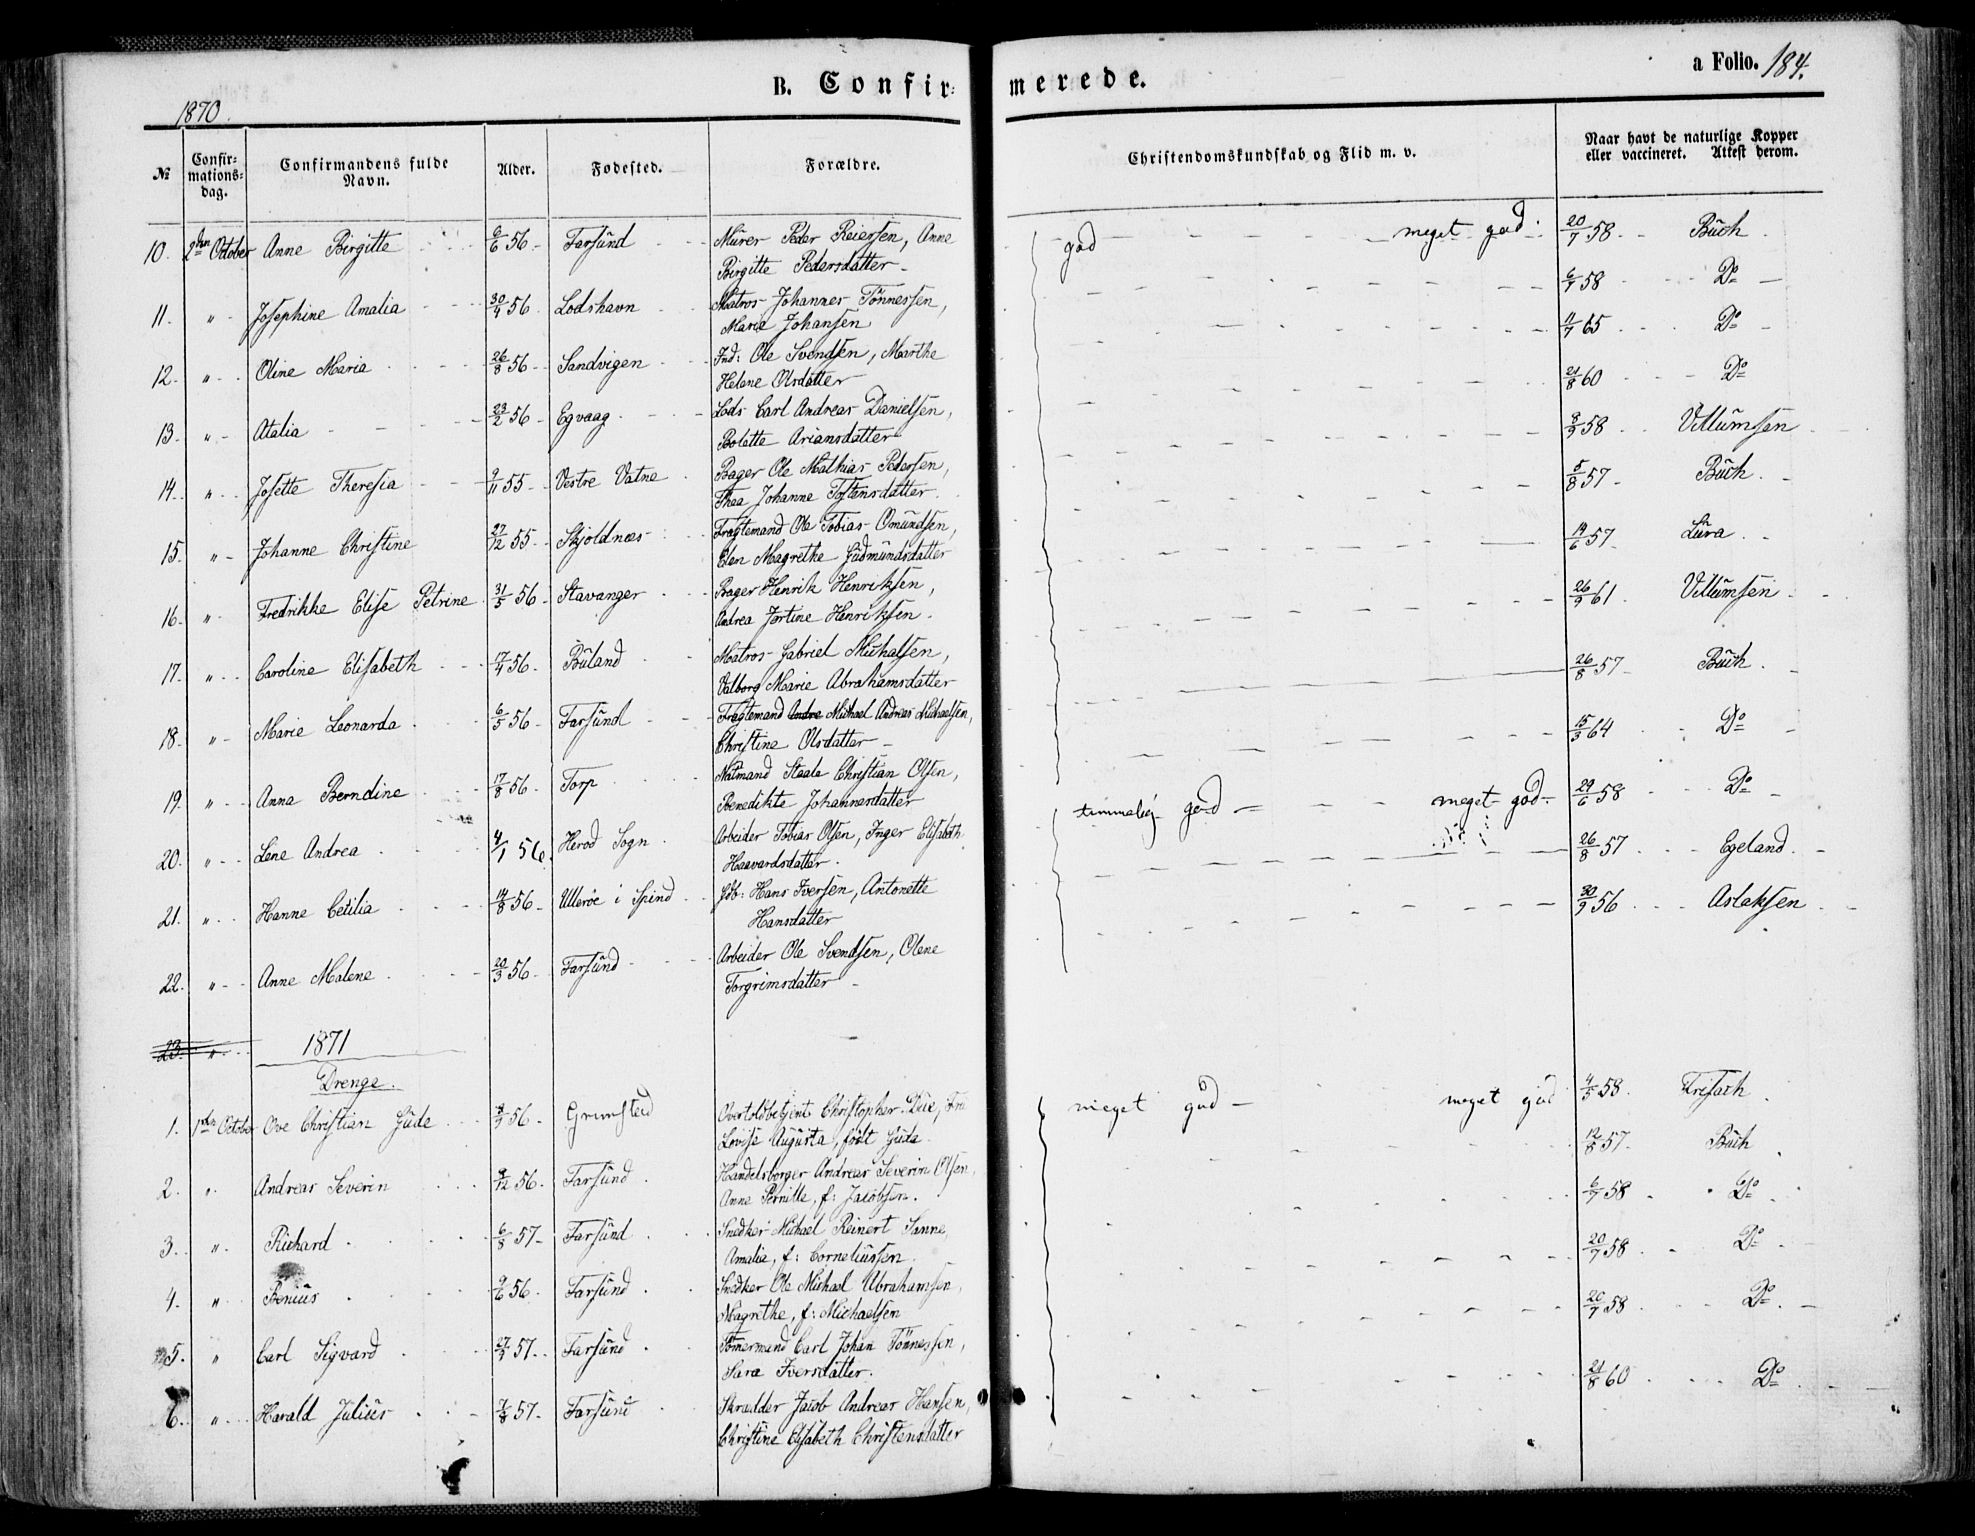 B. Confir- merede.
a Folio. 184.
1870.
№
Confirmations-dag.
Confirmandens fulde Navn.
Alder.
Fødested.
Forældre.
Christendomskundskab og Flid m. v.
Naar havt de naturlige Kopper eller vaccineret. Attest derom.
10. 2den October Anne Birgitte 6/6 56 Farsund Murer Peder Reiersen, Anne god meget god. 20/7 58 Buch
Birgitte Pedersdatter
11. " Josephine Amalia 30/4 56 Lodshavn Matros Johannes Tønnessen, 6/7 58 Do
Marie Johansen
12. " Oline Maria 26/8 56 Sandvigen Ind: Ole Svendsen, Marthe 11/7 65 Do
Helene Olsdatter
13. " Atalia 23/2 56 Egvaag Lods Carl Andreas Danielsen, 21/8 60 Do
Bolette Ariansdatter
14. " Josette Theresia 9/11 55 Vestre Vatne Bager Ole Mathias Pedersen, 8/9 58 Villumsen
Thea Johanne Tostensdatter
15. " Johanne Christine 27/12 55 Skjoldnæs Fragtemand Ole Tobias Omundsen, 5/8 57 Buch
Elen Magrethe Gudmundsdatter
16. " Fredrikke Elise Petrine 31/5 56 Stavanger Bager Henrik Henriksen, 14/6 57 Lura
Andrea Jortine Henriksen
17. " Caroline Elisabeth 7/4 56 Buland Matros Gabriel Michalsen, 26/9 61 Villumsen
Valborg Marie Abrahamsdatter
18. " Marie Leonarda 6/5 56 Farsund Fragtemand Andre Michael Andreas Michaelsen, 26/8 57 Buch
Christine Olsdatter
19. " Anna Berndine 17/8 56 Torp Natmand Steale Christian Olsen, 15/3 64 Do
Benedikte Johannesdatter
20. " Lene Andrea 4/1 56. Herod Sogn Arbeider Tobias Olsen, Inger Elisabeth temmelig god meget god. 29/6 58 Do
Haavardsdatter
21. " Hanne Cecilia 14/8 56 Ullerøe i Spind Gdb: Hans Iversen, Antonette 26/8 57 Egeland
Hansdatter
22. " Anne Malene 20/3 56 Farsund Arbeider Ole Svendsen, Olene 30/9 56 Aslaksen
Torgrimsdatter
23. " 1871
Drenge.
1. 1ste October Ove Christian Gude 3/9 56 Grimsted Overtoldbetjent Christopher Due, Fru meget god meget god 4/5 58. Frisach
Lovise Augusta, født Gude
2. " Andreas Severin 9/12 56. Farsund Handelsborger Andreas Severin Olsen, 12/8 57. Buch
Anne Pernille, f: Jacobsen.
3. " Richard 6/8 57 Farsund Snedker Michael Reinert Sanne, 6/7 58 Do
Amalia, f: Corneliussen
4. " Benius 9/6 56 Farsund Snedker Ole Michael Abrahamsen, 20/7 58 Do
Magrethe, f: Michaelsen
5. " Carl Sigvard 27/3 57. Farsund Tømermand Carl Johan Tønnessen, 20/7 58 Do
Sara Iversdatter.
6. " Harald Julius 7/8 57. Farsund Skrædder Jacob Andreas Hansen, 21/8 60 Do
Christine Elisabeth Christensdatter